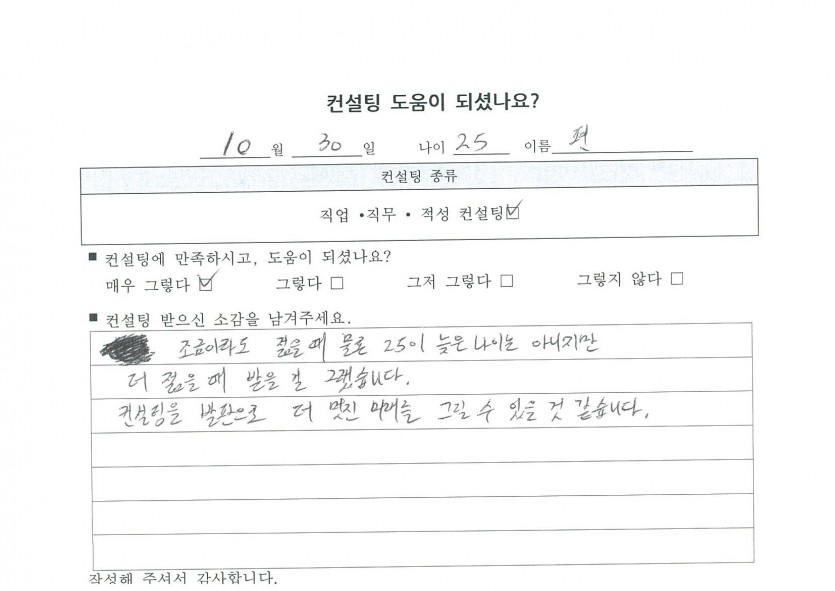 컨설팅 도움이 되셨나요?
10 월 30 일 나이 25 이름 편
컨설팅 종류
직업 •직무 • 적성 컨설팅☑
■ 컨설팅에 만족하시고, 도움이 되셨나요?
매우 그렇다 ☑ 그렇다 □ 그저 그렇다 □ 그렇지 않다 □
■ 컨설팅 받으신 소감을 남겨주세요.
조금이라도 젊을 때 물론 25이 늦은 나이는 아니지만
더 젊을 때 받을 걸 그랬습니다.
컨설팅을 발판으로 더 멋진 미래를 그릴 수 있을 것 같습니다.
작성해 주셔서 감사합니다.